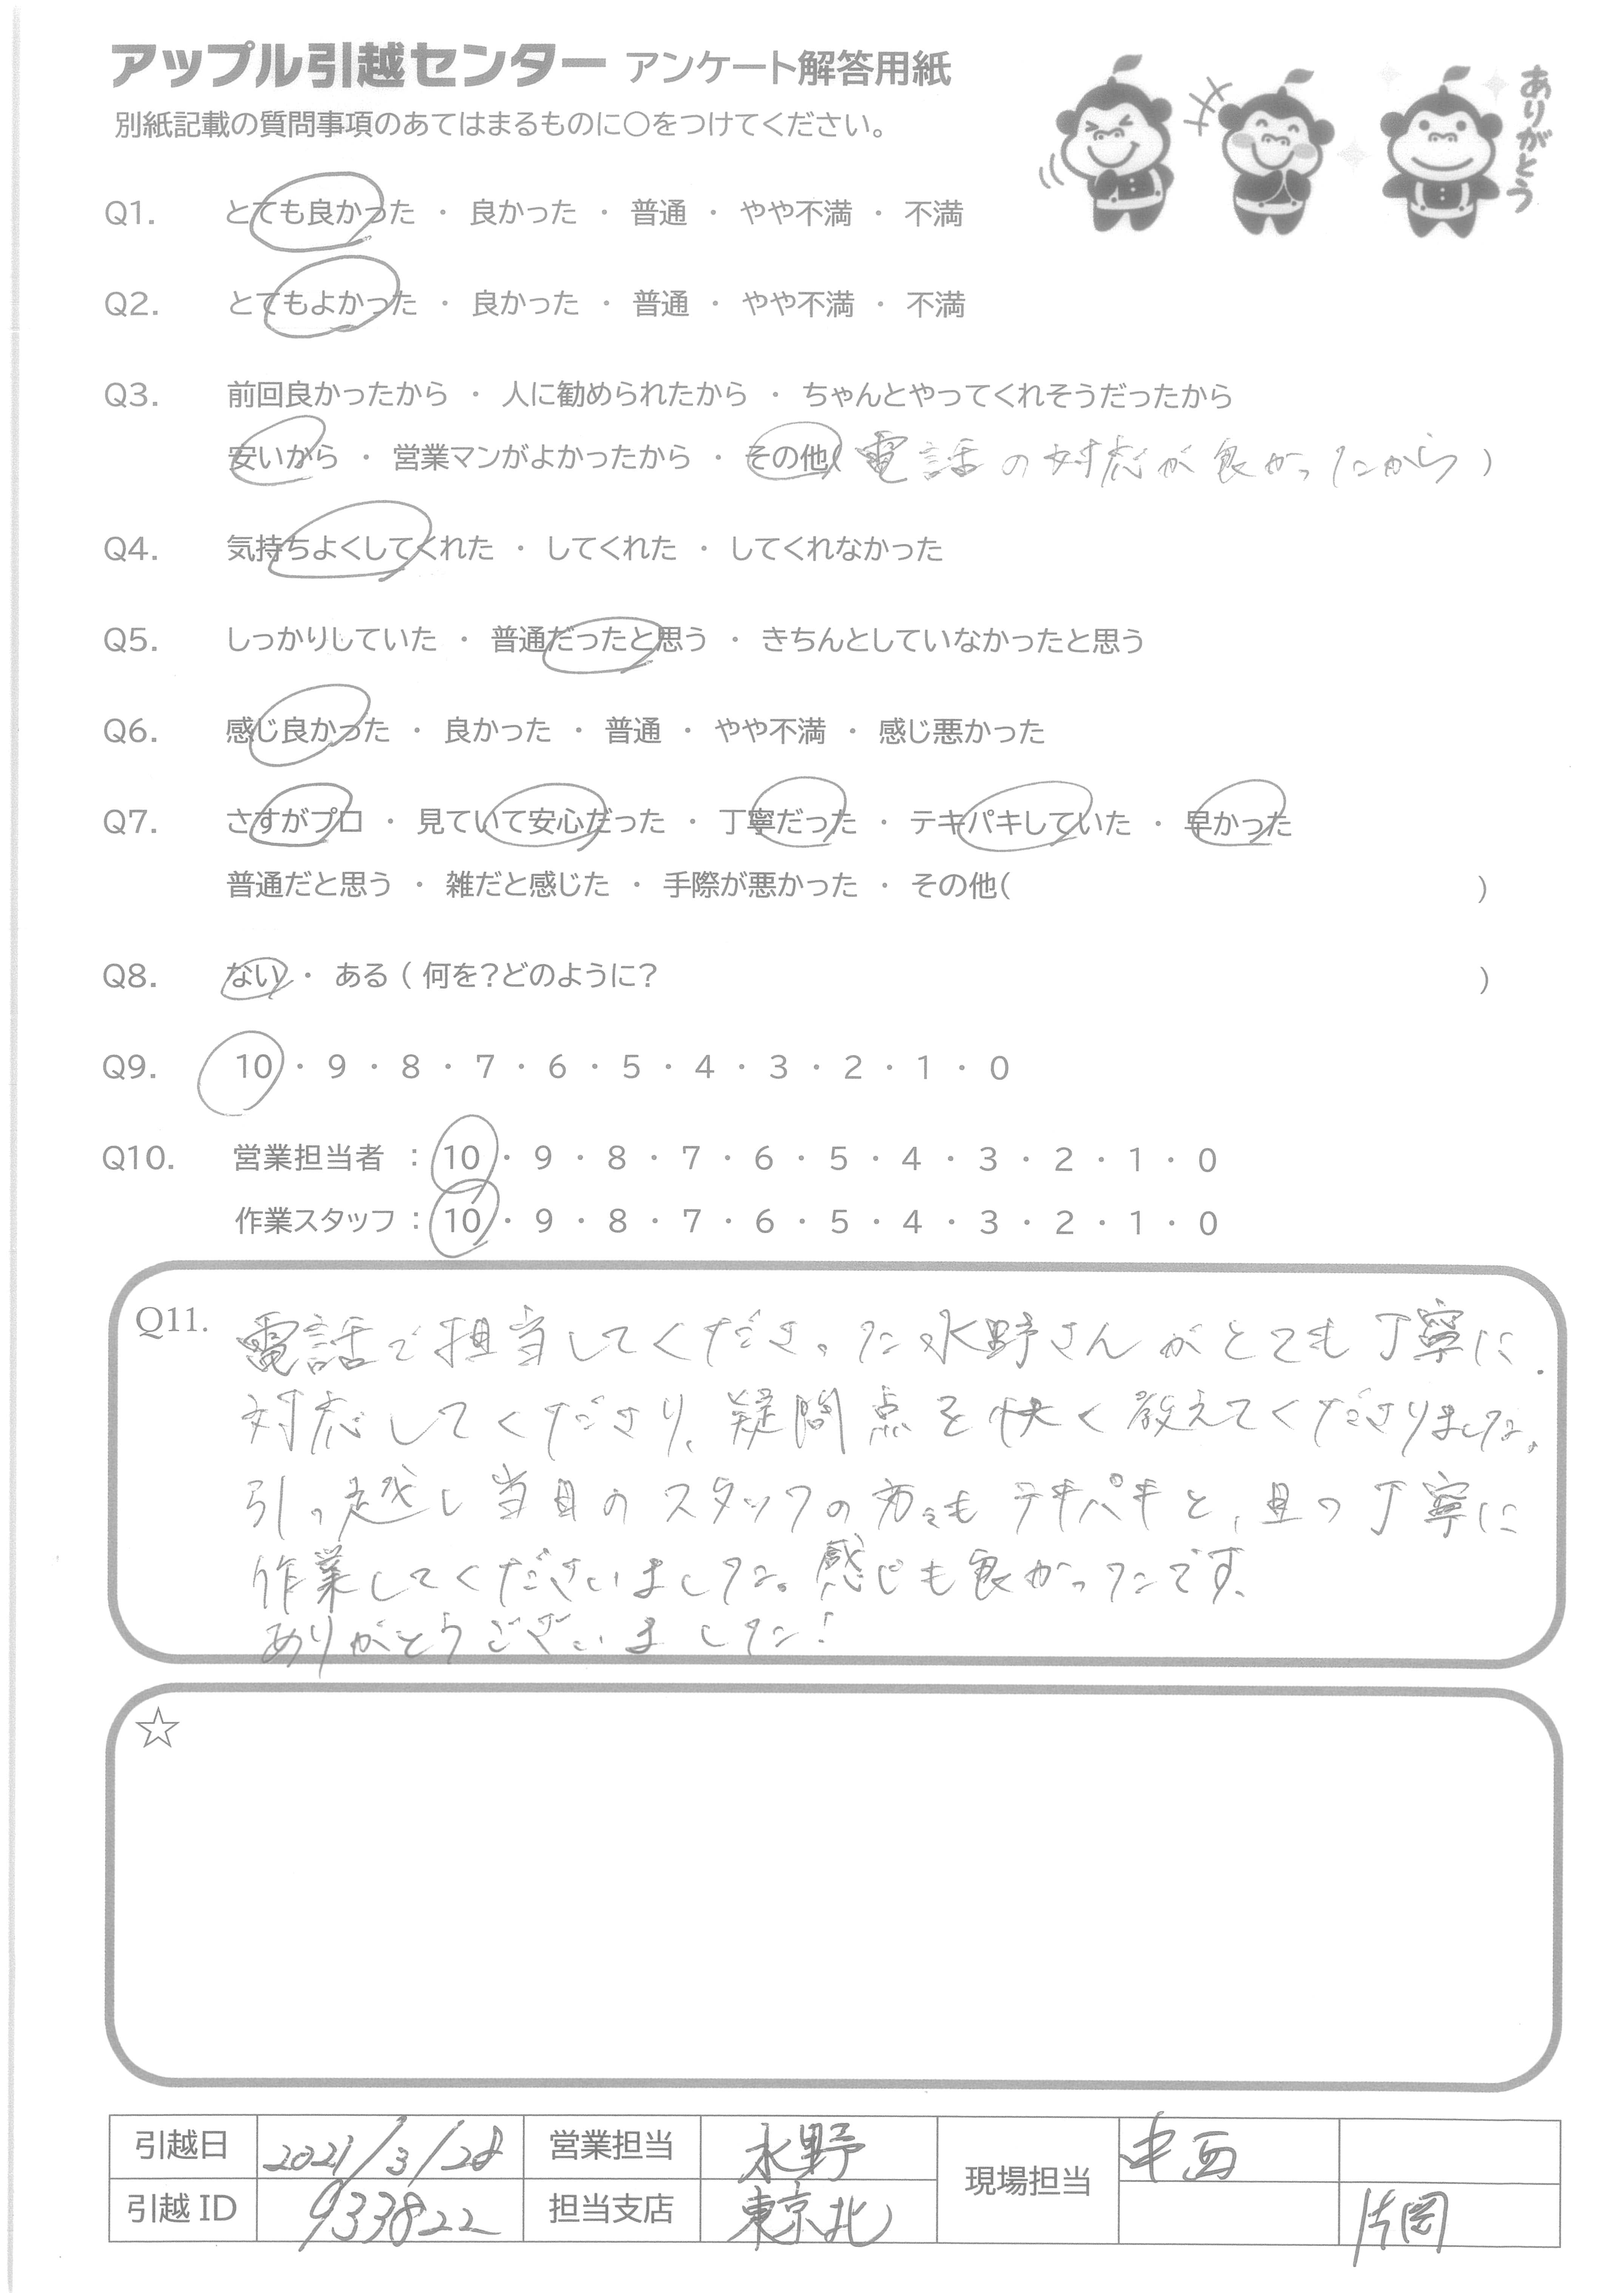 アップル引越センター アンケート解答用紙
別紙記載の質問事項のあてはまるものに○をつけてください。
ありがとう
Q1. とても良かった ・ 良かった ・ 普通 ・ やや不満 ・ 不満
Q2. とてもよかった ・ 良かった ・ 普通 ・ やや不満 ・ 不満
Q3. 前回良かったから ・ 人に勧められたから ・ ちゃんとやってくれそうだったから
安いから ・ 営業マンがよかったから ・ その他( 電話の対応が良かったから )
Q4. 気持ちよくしてくれた ・ してくれた ・ してくれなかった
Q5. しっかりしていた ・ 普通だったと思う ・ きちんとしていなかったと思う
Q6. 感じ良かった ・ 良かった ・ 普通 ・ やや不満 ・ 感じ悪かった
Q7. さすがプロ ・ 見ていて安心だった ・ 丁寧だった ・ テキパキしていた ・ 早かった
普通だと思う ・ 雑だと感じた ・ 手際が悪かった ・ その他( )
Q8. ない ・ ある ( 何を?どのように? )
Q9. 10 ・ 9 ・ 8 ・ 7 ・ 6 ・ 5 ・ 4 ・ 3 ・ 2 ・ 1 ・ 0
Q10. 営業担当者 : 10 ・ 9 ・ 8 ・ 7 ・ 6 ・ 5 ・ 4 ・ 3 ・ 2 ・ 1 ・ 0
作業スタッフ : 10 ・ 9 ・ 8 ・ 7 ・ 6 ・ 5 ・ 4 ・ 3 ・ 2 ・ 1 ・ 0
Q11. 電話で担当してくださった水野さんがとても丁寧に
対応してくださり、疑問点を快く教えてくださりました。
引っ越し当日のスタッフの方々もテキパキと、且つ丁寧に
作業してくださいました。感じも良かったです。
ありがとうございました!
☆
引越日 2021/3/28 営業担当 水野 現場担当 中西
引越ID 933822 担当支店 東京北 片岡